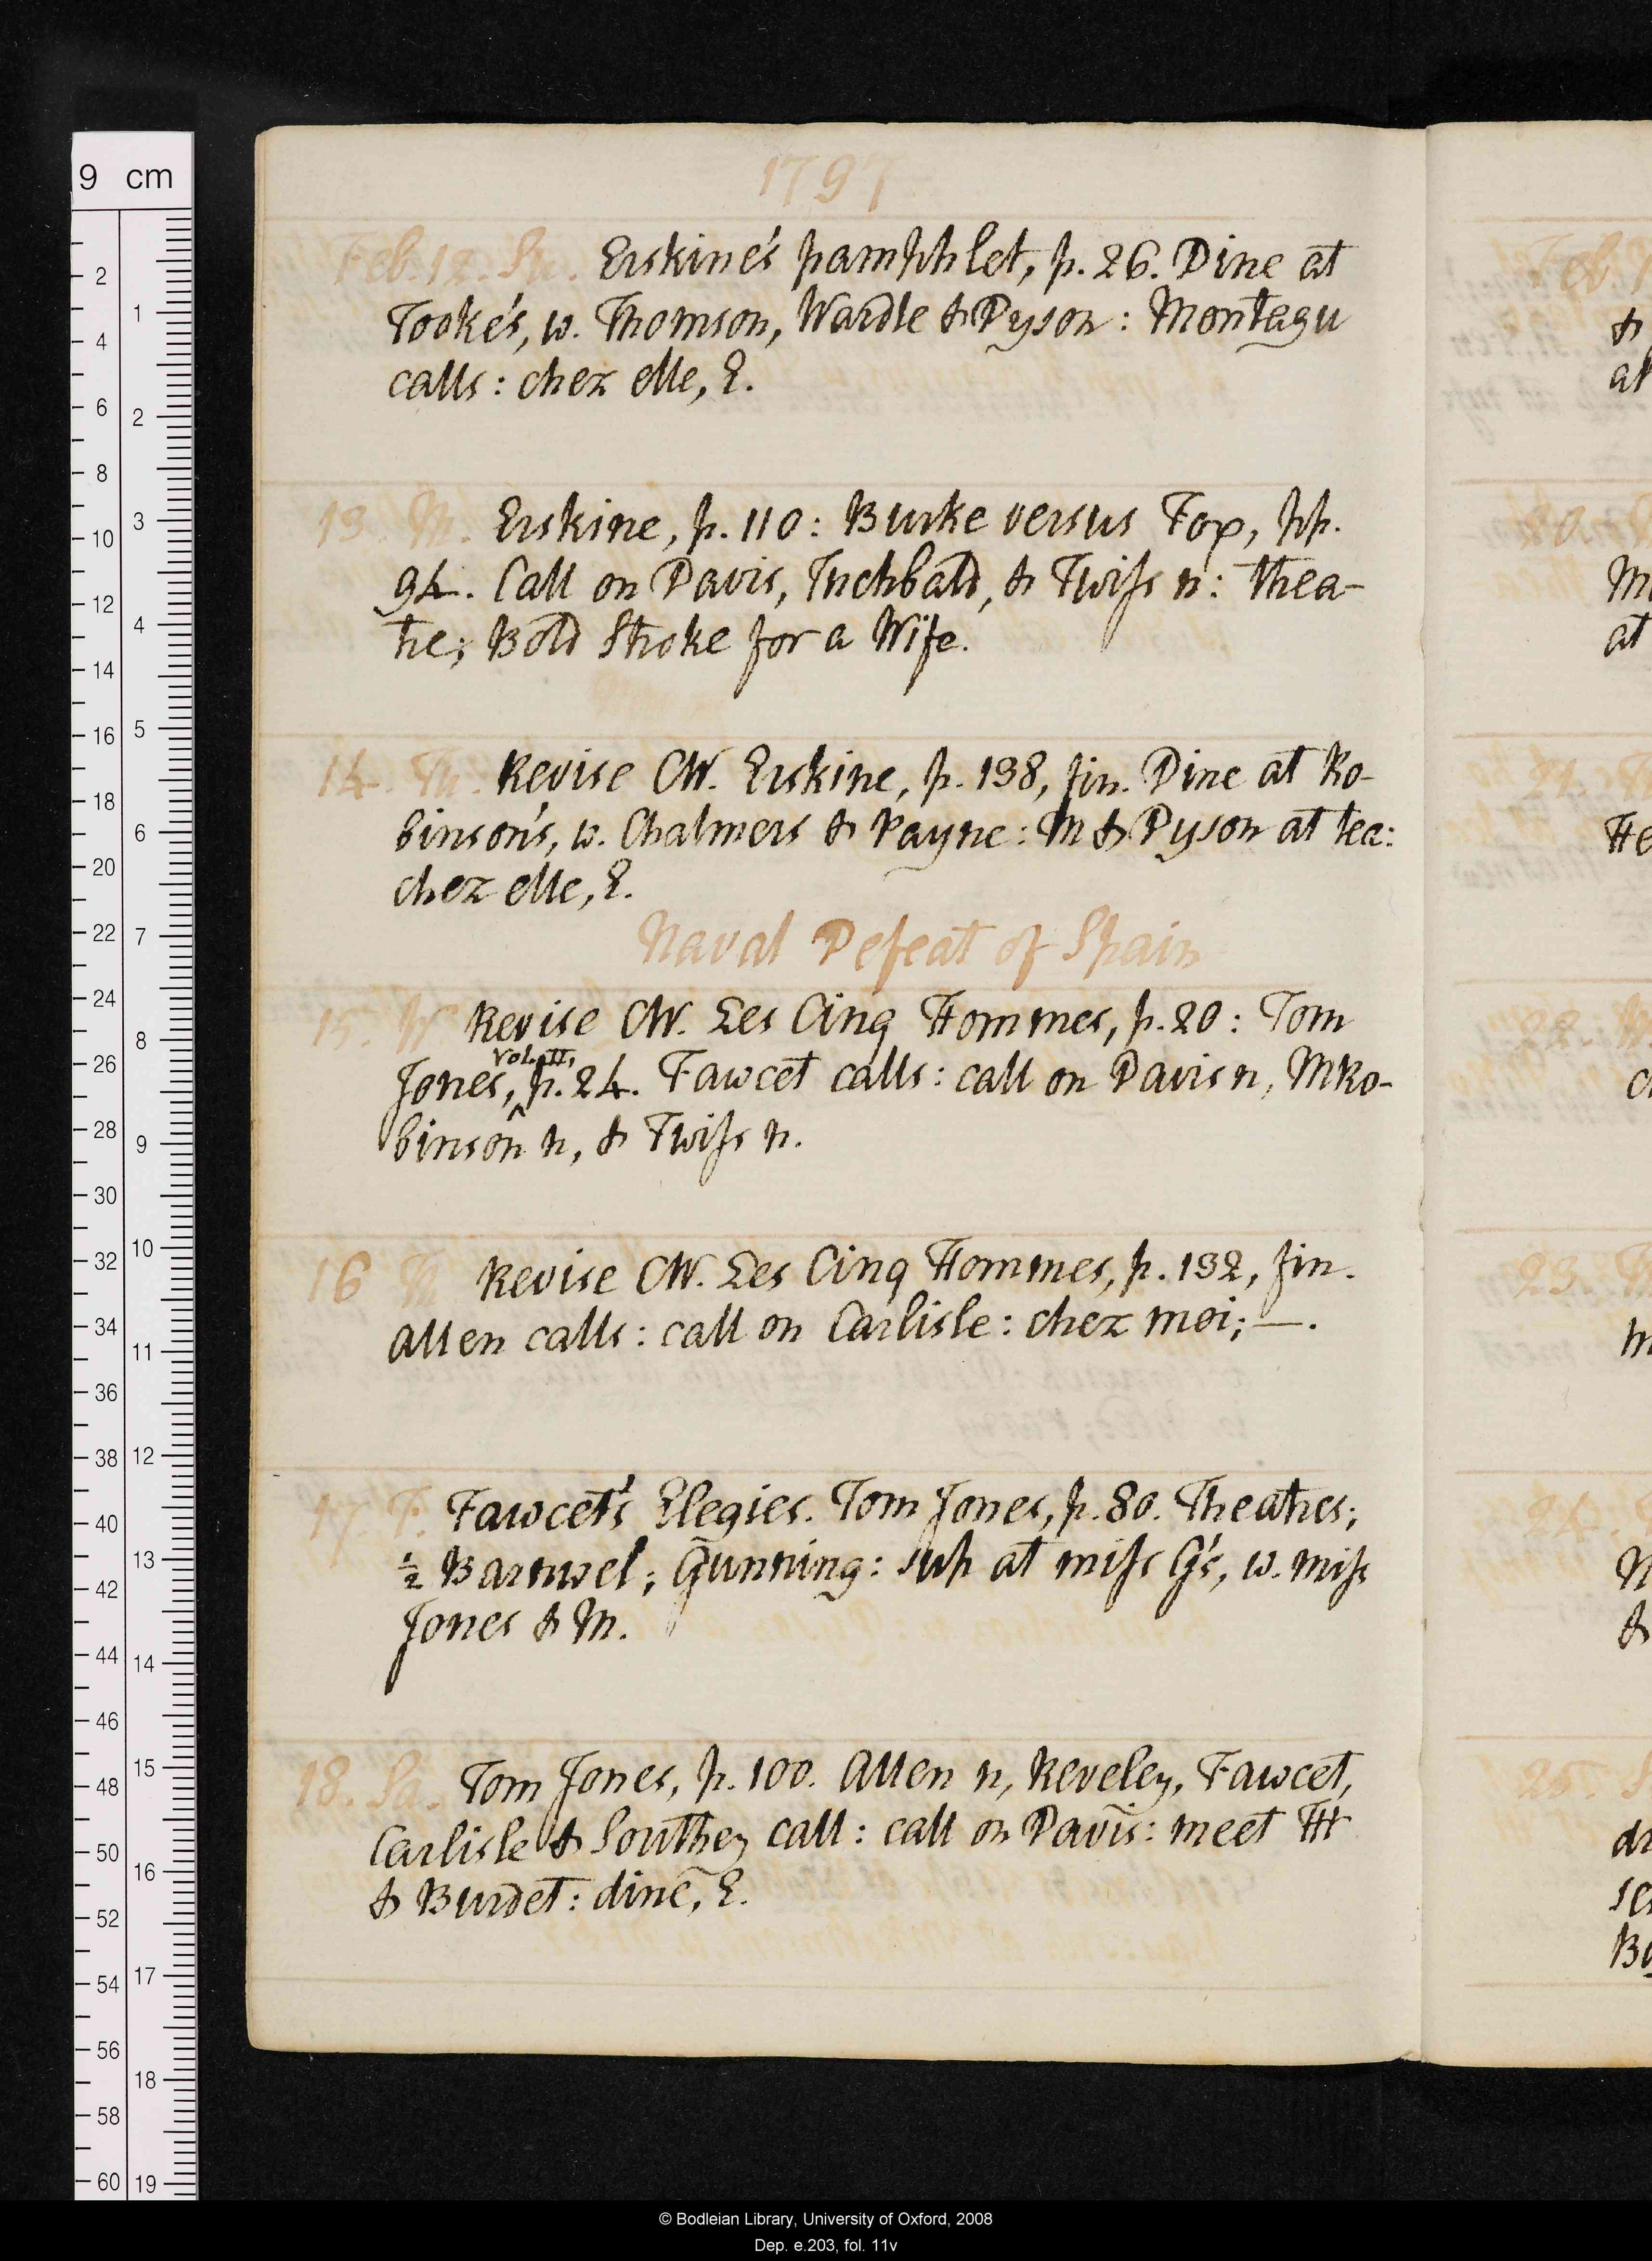 1797
Feb. 12. Su. Erskine's pamphlet, p. 26. Dine at
Tooke's, w. Thomson, Wardle & Dyson: Montagu
calls: chez elle, E.
13. M. Erskine, p. 110: Burke versus Fox, pp.
94. Call on Davis, Inchbald, & Twiss n: thea-
tre; Bold Stroke for a Wife.
14. Tu. Revise CW. Erskine, p. 138, fin. Dine at Ro-
binson's, w. Chalmers & Payne: M & Dyson at tea:
chez elle, E.
Naval Defeat of Spain
15. W Revise CW. Les Cinq Hommes, p. 20: Tom
Jones, vol. II, p. 24. Fawcet calls: call on Davis n, MRo-
binson n, & Twiss n.
16 Revise CW. Les Cinq Hommes, p. 132, fin.
Allen calls: call on Carlisle: chez moi; —.
17 F. Fawcet's Elegies. Tom Jones, p. 80. Theatres;
½ Barnwel; Gunning: sup at miss G's, w. miss
Jones & M.
18. Sa. Tom Jones, p. 100. Allen n, Reveley, Fawcet,
Carlisle & Southey call: call on Davis: meet HT
& Burdet: dine, E.
9 cm
© Bodleian Library, University of Oxford, 2008
Dep. e.203, fol. 11v